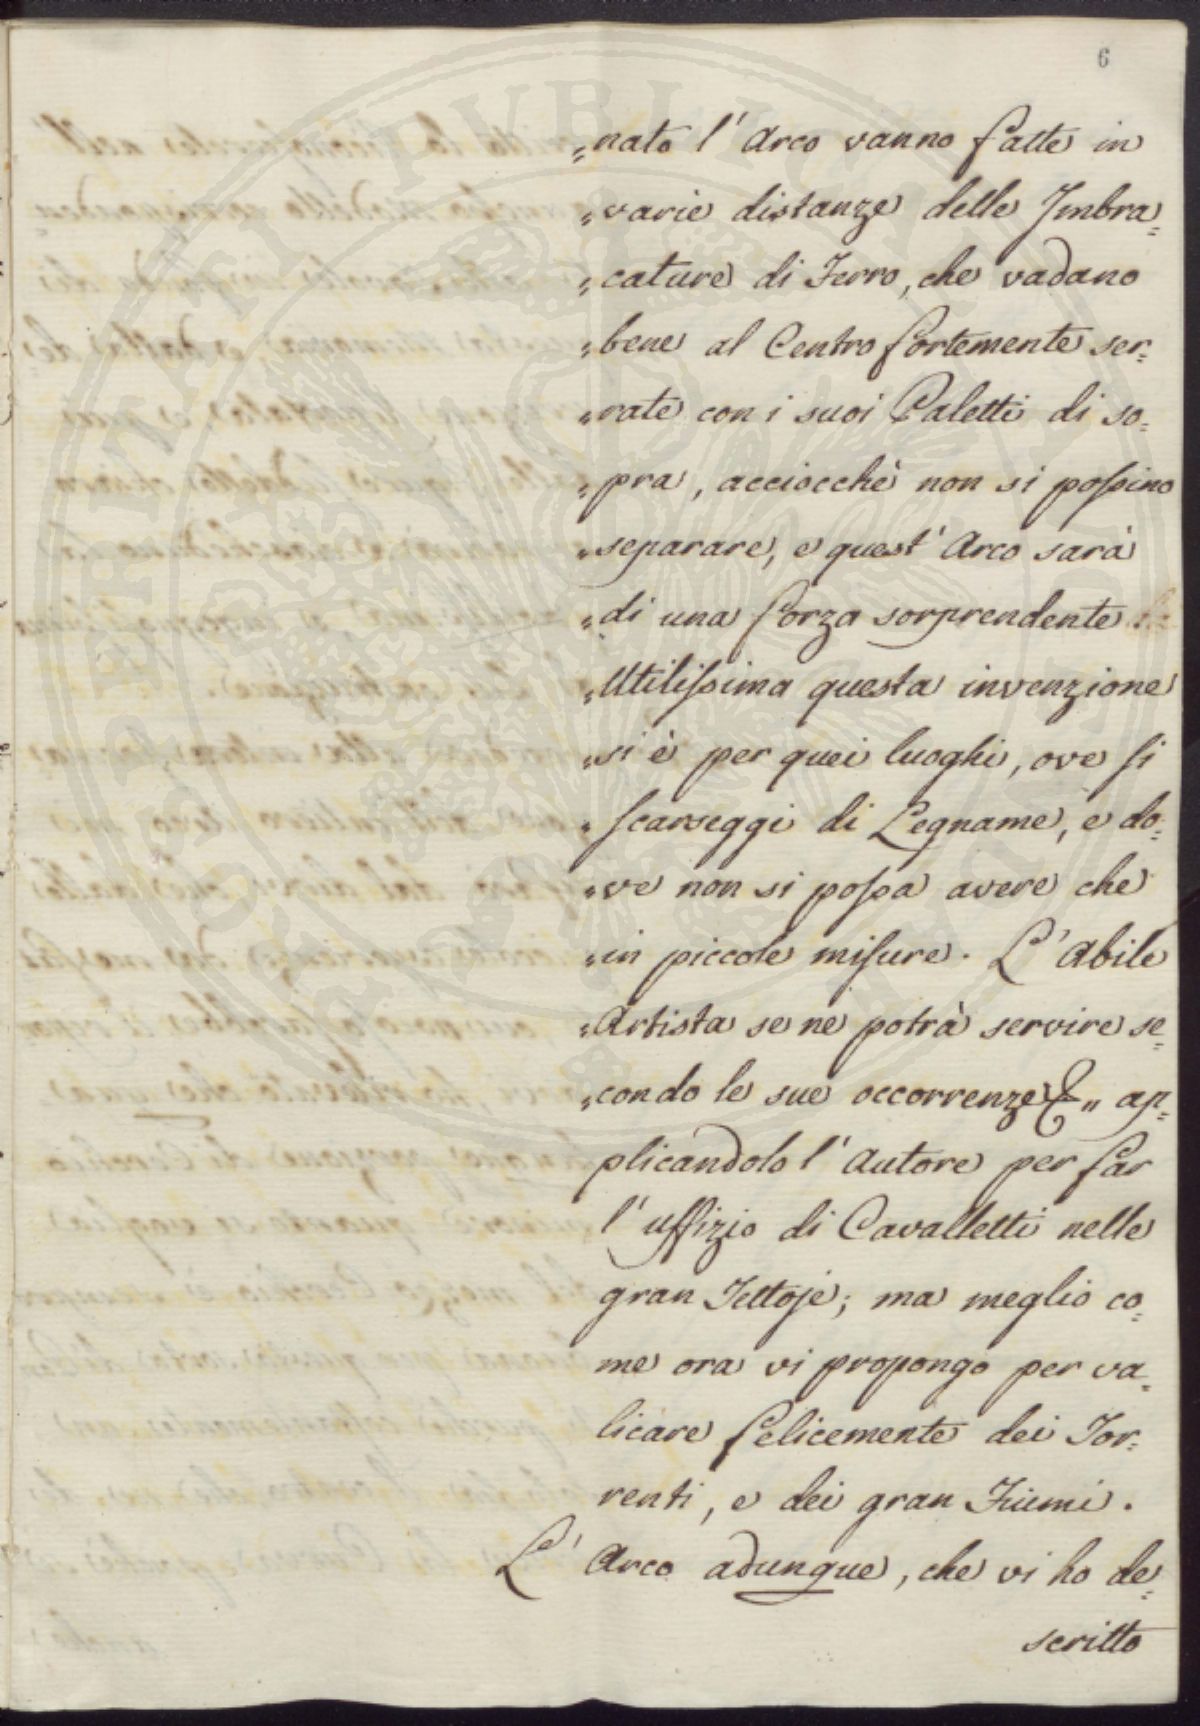 6
„nato l' Arco vanno fatte in
„varie distanze delle Imbra=
„cature di Ferro, che vadano
„bene al Centro fortemente ser=
„rate con i suoi Paletti di so=
„pra, acciocchè non si poſsino
„separare, e quest' Arco sarà
„di una forza sorprendente.
„Utiliſsima questa invenzione
„si è per quei luoghi, ove ſi
„ſcarseggi di Legname, e do=
„ve non si poſsa avere che
„in piccole miſure. L' Abile
„Artista se ne potrà servire se=
„condo le sue occorrenze &„ ap=
plicandolo l' Autore per far
l' uffizio di Cavalletti nelle
gran Tettoje; ma meglio co=
me ora vi propongo per va=
licare felicemente dei Tor=
renti, e dei gran Fiumi.
L' Arco adunque, che vi ho de=
scritto